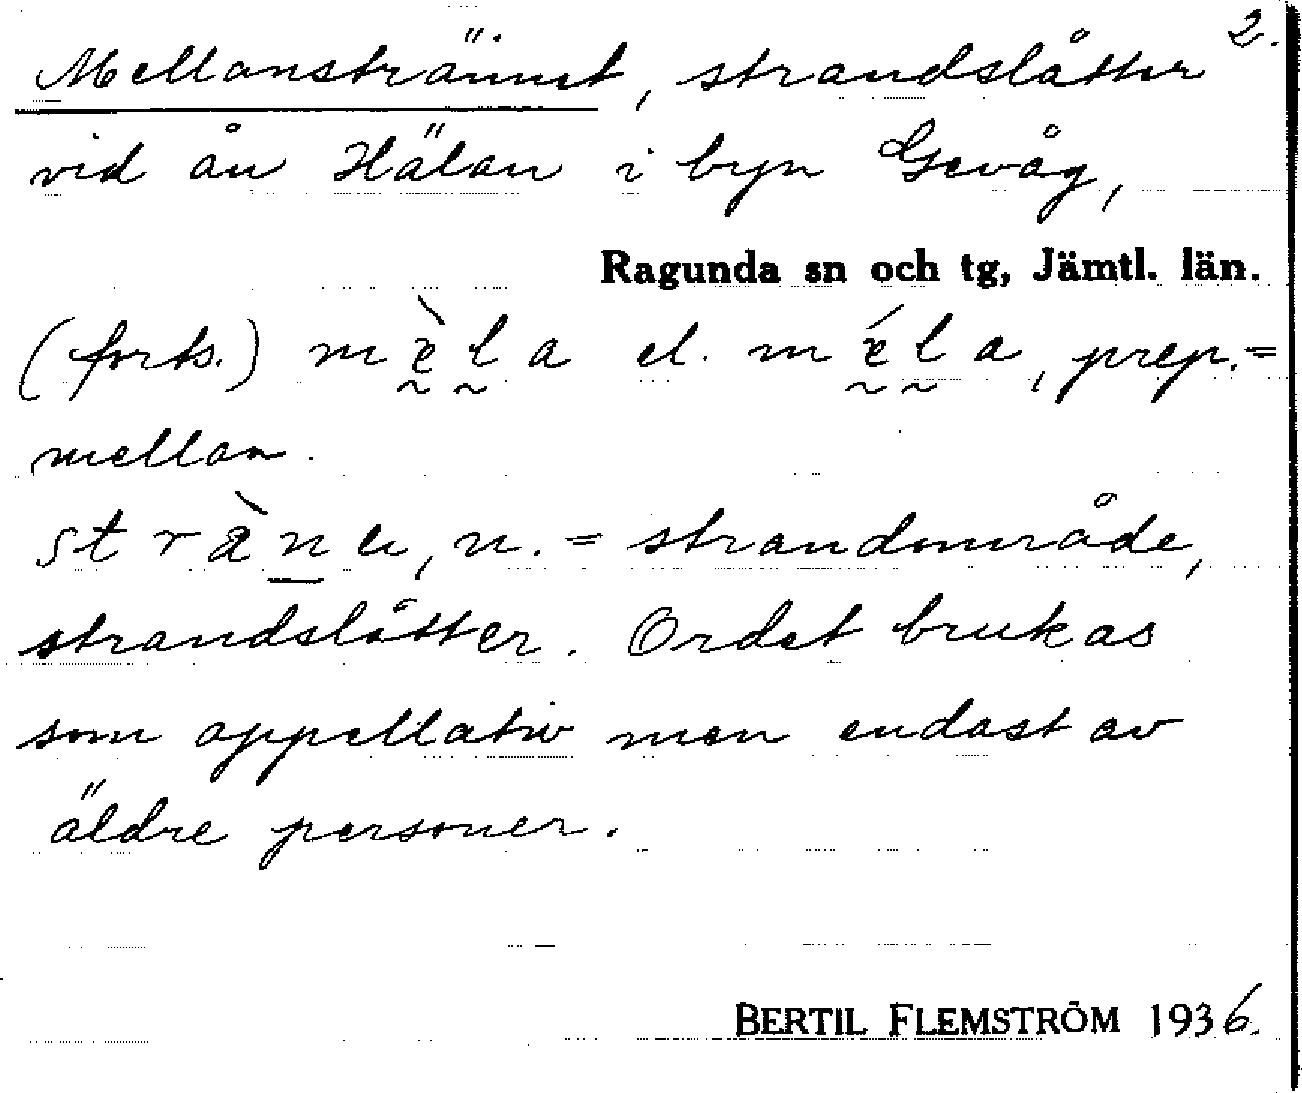 2.
Mellanstrännet, strandslåtter
vid ån Hälan i byn Gevåg,
Ragunda sn och tg, Jämtl. län.
(forts.) mèla el. méla, prep. =
mellan.
n. = strandområde,
strandslåtter. Ordet brukas
som appellativ men endast av
äldre personer.
BERTIL FLEMSTRÖM 1936.